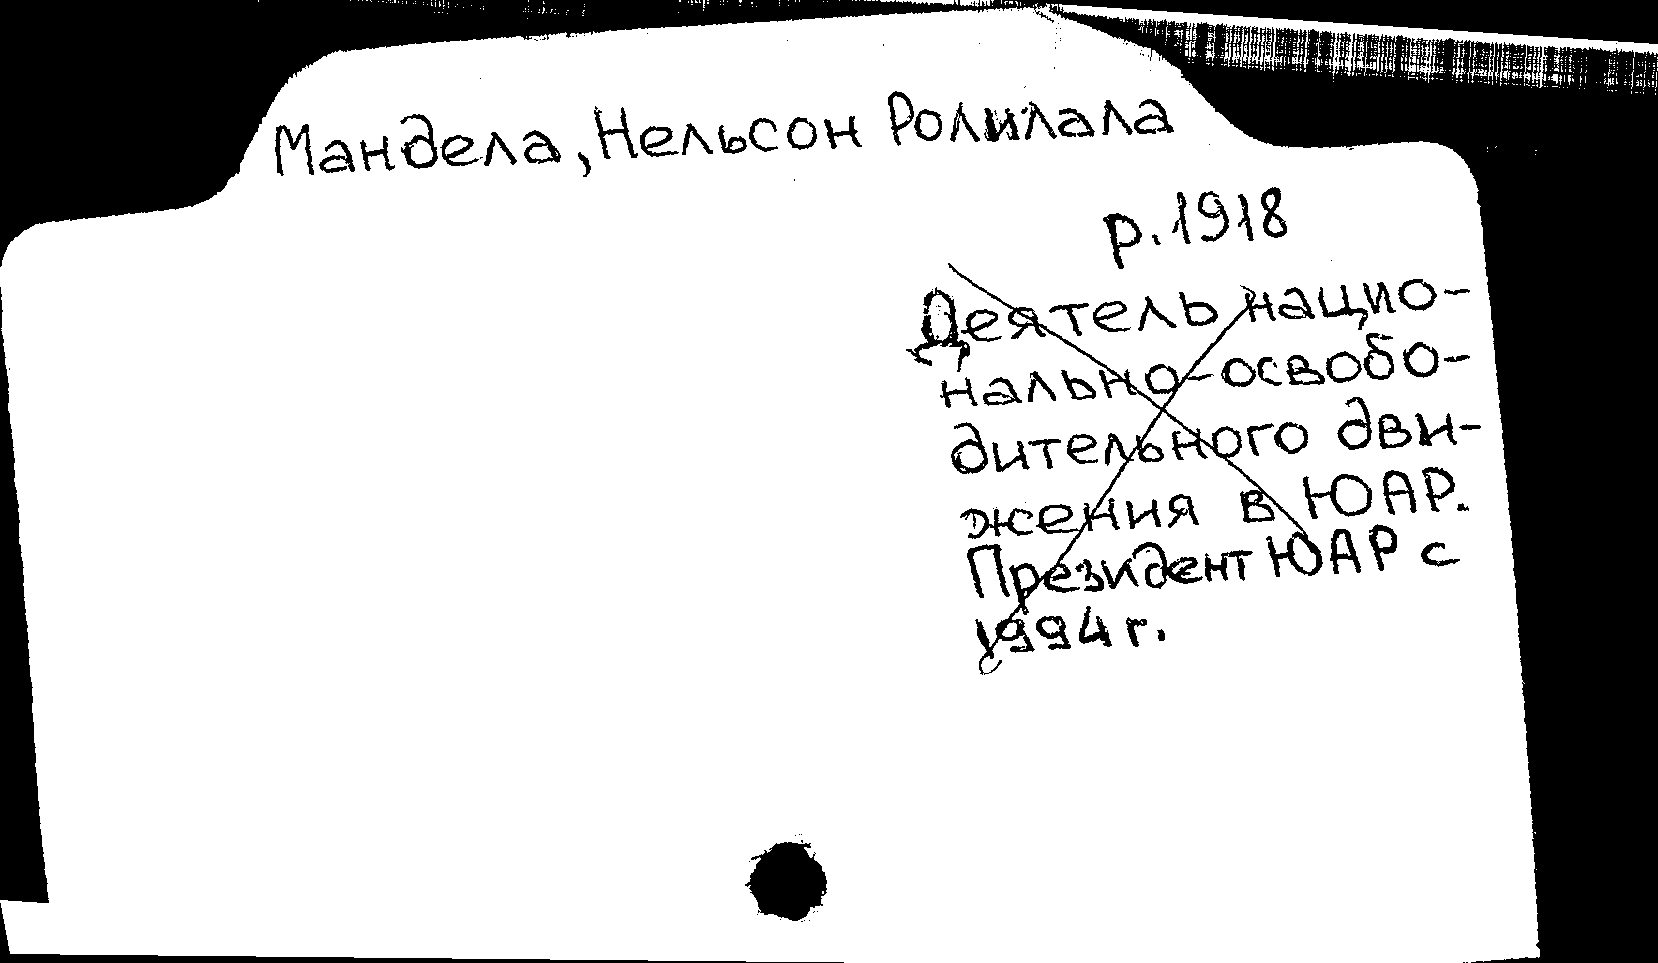 Мандела, Нельсон Ролилала
р. 1918
Деятель нацио-
нально-освобо-
дительного дви-
жения в ЮАР.
Президент ЮАР с
1994 г.